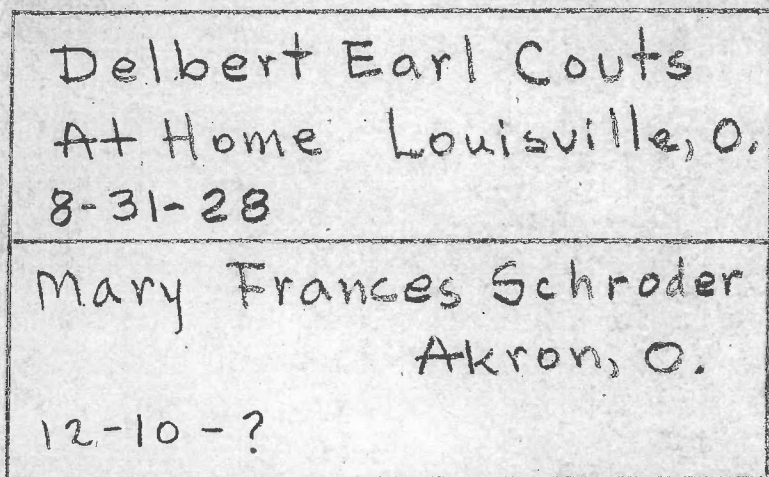 Delbert Earl Couts
At Home Louisville, O.
8-31-28
Mary Frances Schroder
Akron, O.
12-10-?